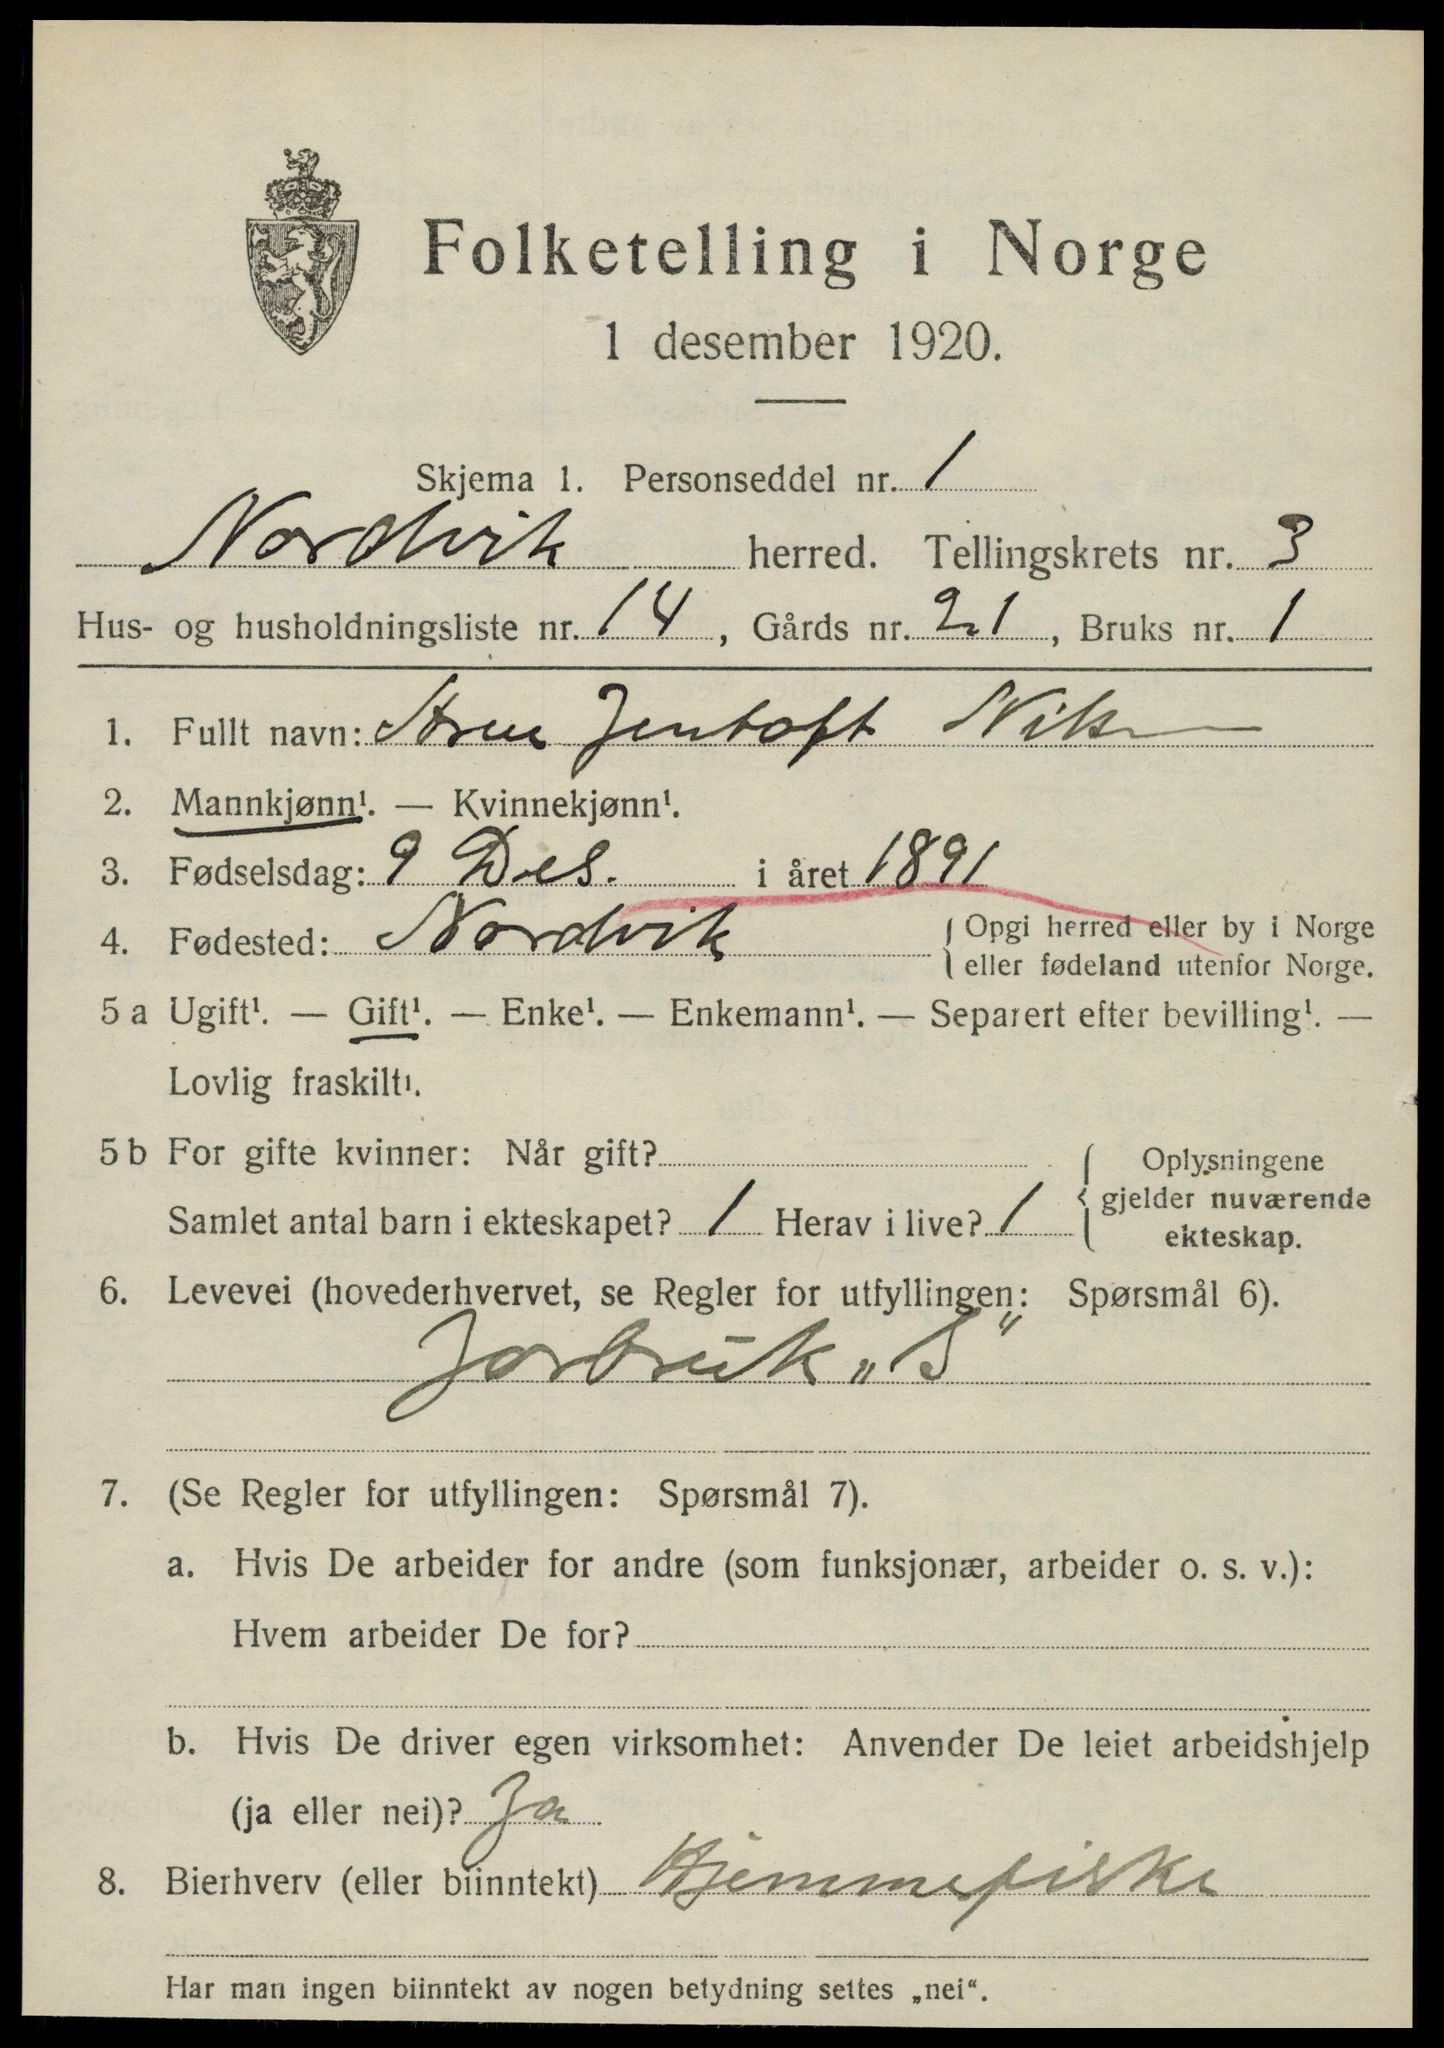 Folketelling i Norge
1 desember 1920.
Skjema 1. Personseddel nr. 1
Nordvik herred. Tellingskrets nr. 3
Hus- og husholdningsliste nr. 14, Gårds nr. 21, Bruks nr. 1
1. Fullt navn: Jentoft
2. Mannkjønn¹. — Kvinnekjønn¹.
3. Fødselsdag: 9 Des. i året 1891
4. Fødested: Nordvik {Opgi herred eller by i Norge
eller fødeland utenfor Norge.
5 a Ugift¹. — Gift¹. — Enke¹. — Enkemann¹. — Separert efter bevilling¹. —
Lovlig fraskilt¹.
5 b For gifte kvinner: Når gift?
Samlet antal barn i ekteskapet? 1 Herav i live? 1
{Oplysningene
gjelder nuværende
ekteskap.
6. Levevei (hovederhvervet, se Regler for utfyllingen: Spørsmål 6).
Jorbruk „S“
7. (Se Regler for utfyllingen: Spørsmål 7).
a. Hvis De arbeider for andre (som funksjonær, arbeider o. s. v.):
Hvem arbeider De for?
b. Hvis De driver egen virksomhet: Anvender De leiet arbeidshjelp
(ja eller nei)? Ja
8. Bierhverv (eller biinntekt) Hjemmefiske
Har man ingen biinntekt av nogen betydning settes „nei“.